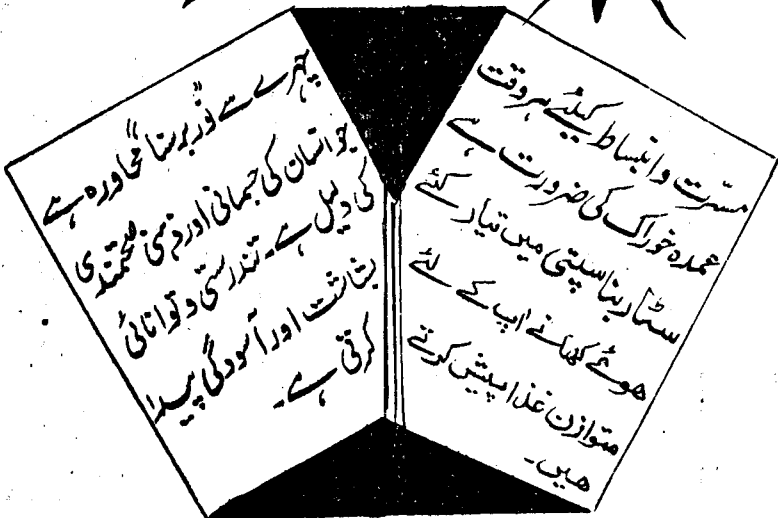 مسرّت و انبساط کیلئے ہر وقت
عمدہ خوراک کی ضرورت ہے
سٹار بناسپتی میں تیار کئے
ہوئے کھانے آپ کے لئے
متوازن غذا پیش کرتے
ہیں۔
چہرے سے "نُور برسنا" محاورہ ہے
جو انسان کی جسمانی اور ذہنی صحتمندی
کی دلیل ہے۔ تندرستی و توانائی
بشاشت اور آسودگی پیدا
کرتی ہے۔